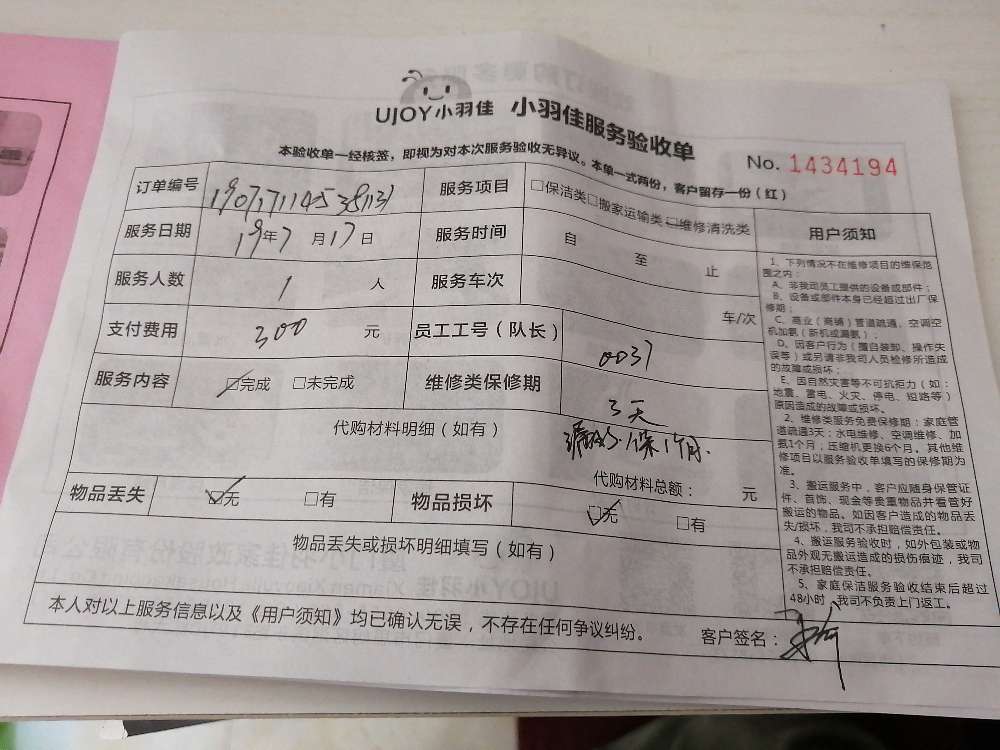 UJOY小羽佳 小羽佳服务验收单
本验收单一经核签，即视为对本次服务验收无异议。本单一式两份，客户留存一份（红）
No. 1434194
订单编号 服务项目 □保洁类□搬家运输类□维修清洗类
服务日期 19年7月17日 服务时间 自 至 止
服务人数 1 人 服务车次 车/次
支付费用 300 元 员工工号（队长） 0037
服务内容 □完成 □未完成 维修类保修期 3天
代购材料明细（如有） 保1个月.
代购材料总额： 元
物品丢失 □无 □有 物品损坏 □无 □有
物品丢失或损坏明细填写（如有）
本人对以上服务信息以及《用户须知》均已确认无误，不存在任何争议纠纷。 客户签名：
用户须知
1、下列情况不在维修项目的维保范
围之内：
A、非我司员工提供的设备或部件；
B、设备或部件本身已经超过出厂保
修期；
C、商业（商铺）管道疏通、空调空
机加氨（新机或漏氨）；
D、因客户行为（擅自装卸、操作失
误等）或另请非我司人员检修所造成
的故障或损坏；
E、因自然灾害等不可抗拒力（如：
地震、雷电、火灾、停电、短路等）
原因造成的故障或损坏。
2、维修类服务免费保修期：家庭管
道疏通3天；水电维修、空调维修、加
氨1个月；压缩机更换6个月。其他维
修项目以服务验收单填写的保修期为
准。
3、搬运服务中，客户应随身保管证
件、首饰、现金等贵重物品并看管好
搬运的物品。如因客户造成的物品丢
失/损坏，我司不承担赔偿责任。
4、搬运服务验收时，如外包装或物
品外观无搬运造成的损伤痕迹，我司
不承担赔偿责任。
5、家庭保洁服务验收结束后超过
48小时，我司不负责上门返工。